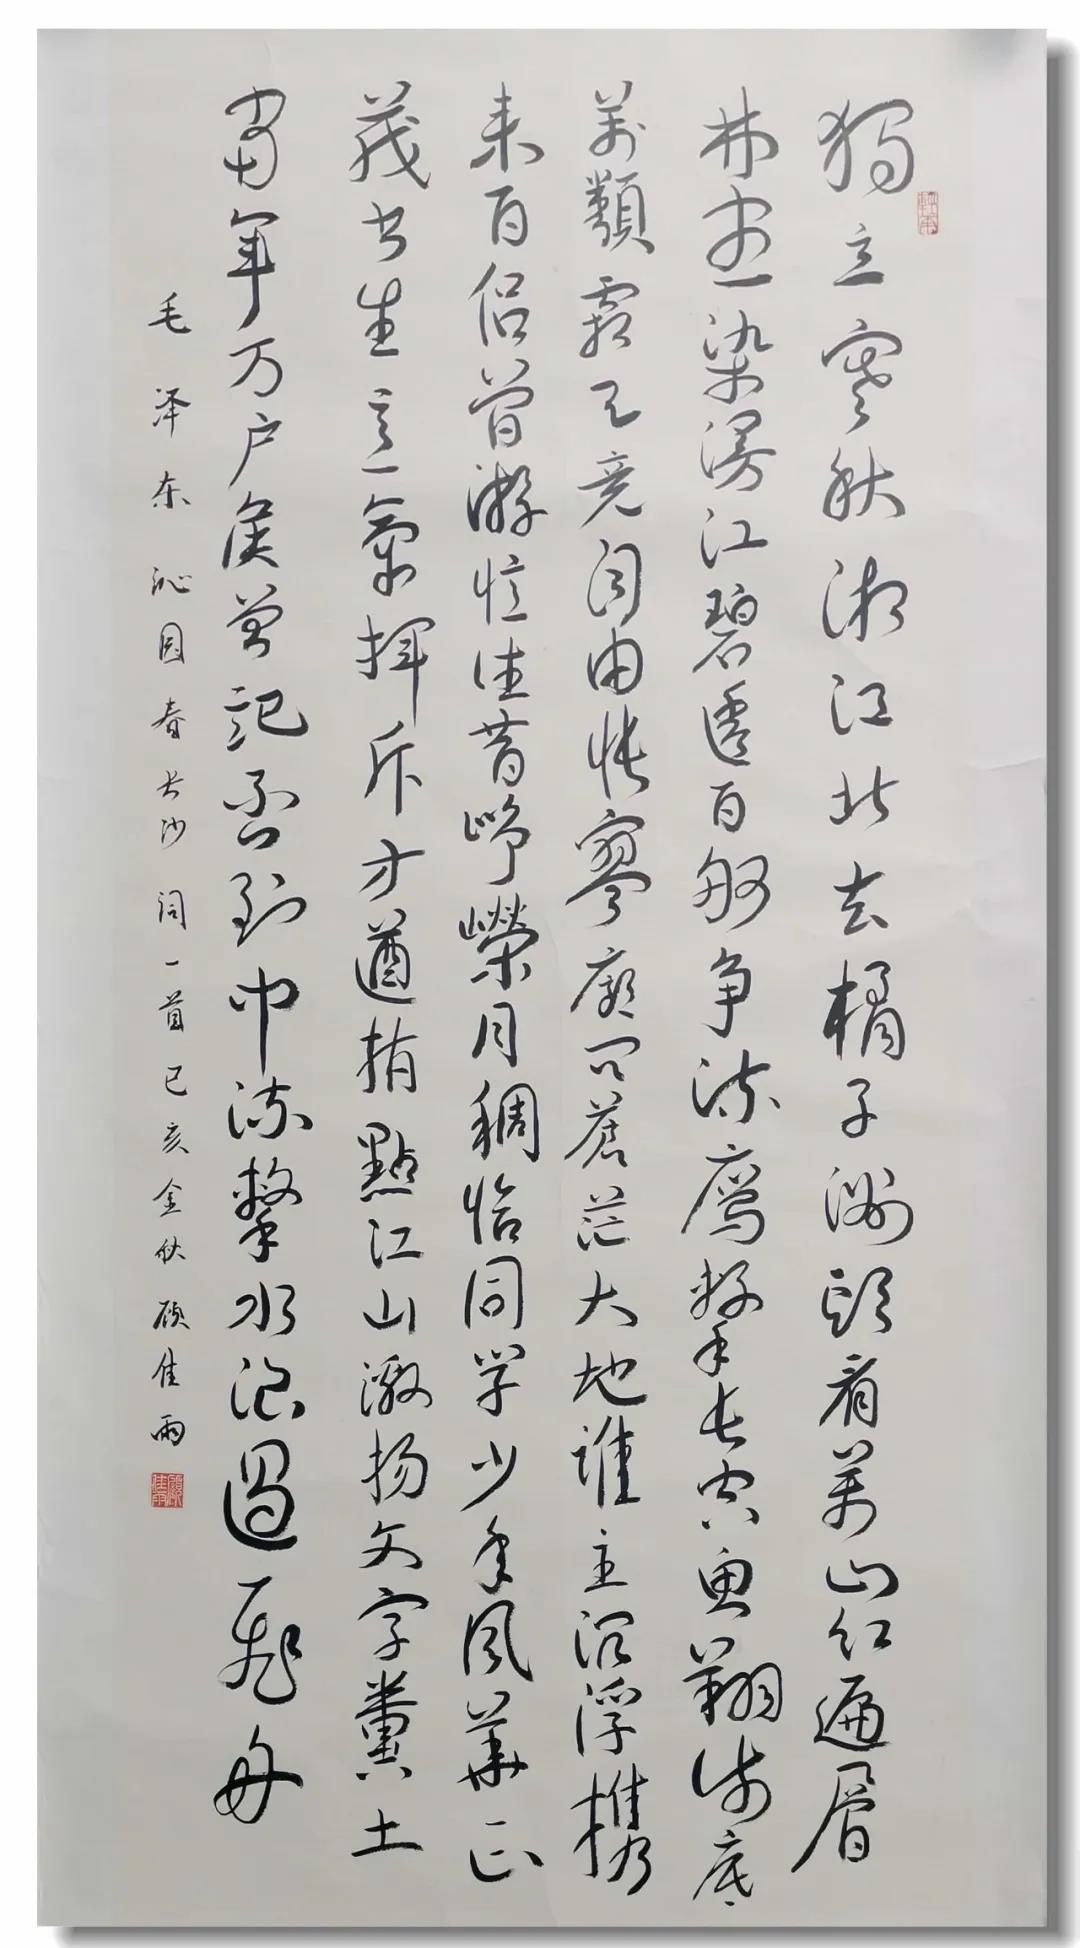 獨立寒秋湘江北去橘子洲頭看萬山红遍層
林盡染漫江碧透百舸争流鹰擊長空魚翔浅底
萬類霜天竞自由悵寥廓问蒼茫大地谁主沉浮携
来百侣曾游忆往昔峥嶸月稠恰同学少年風華正
茂书生意氣揮斥方遒指點江山激扬文字糞土
當年万户侯曾記否到中流擊水浪遏飛舟
毛泽东沁园春长沙词一首己亥金秋顾佳雨